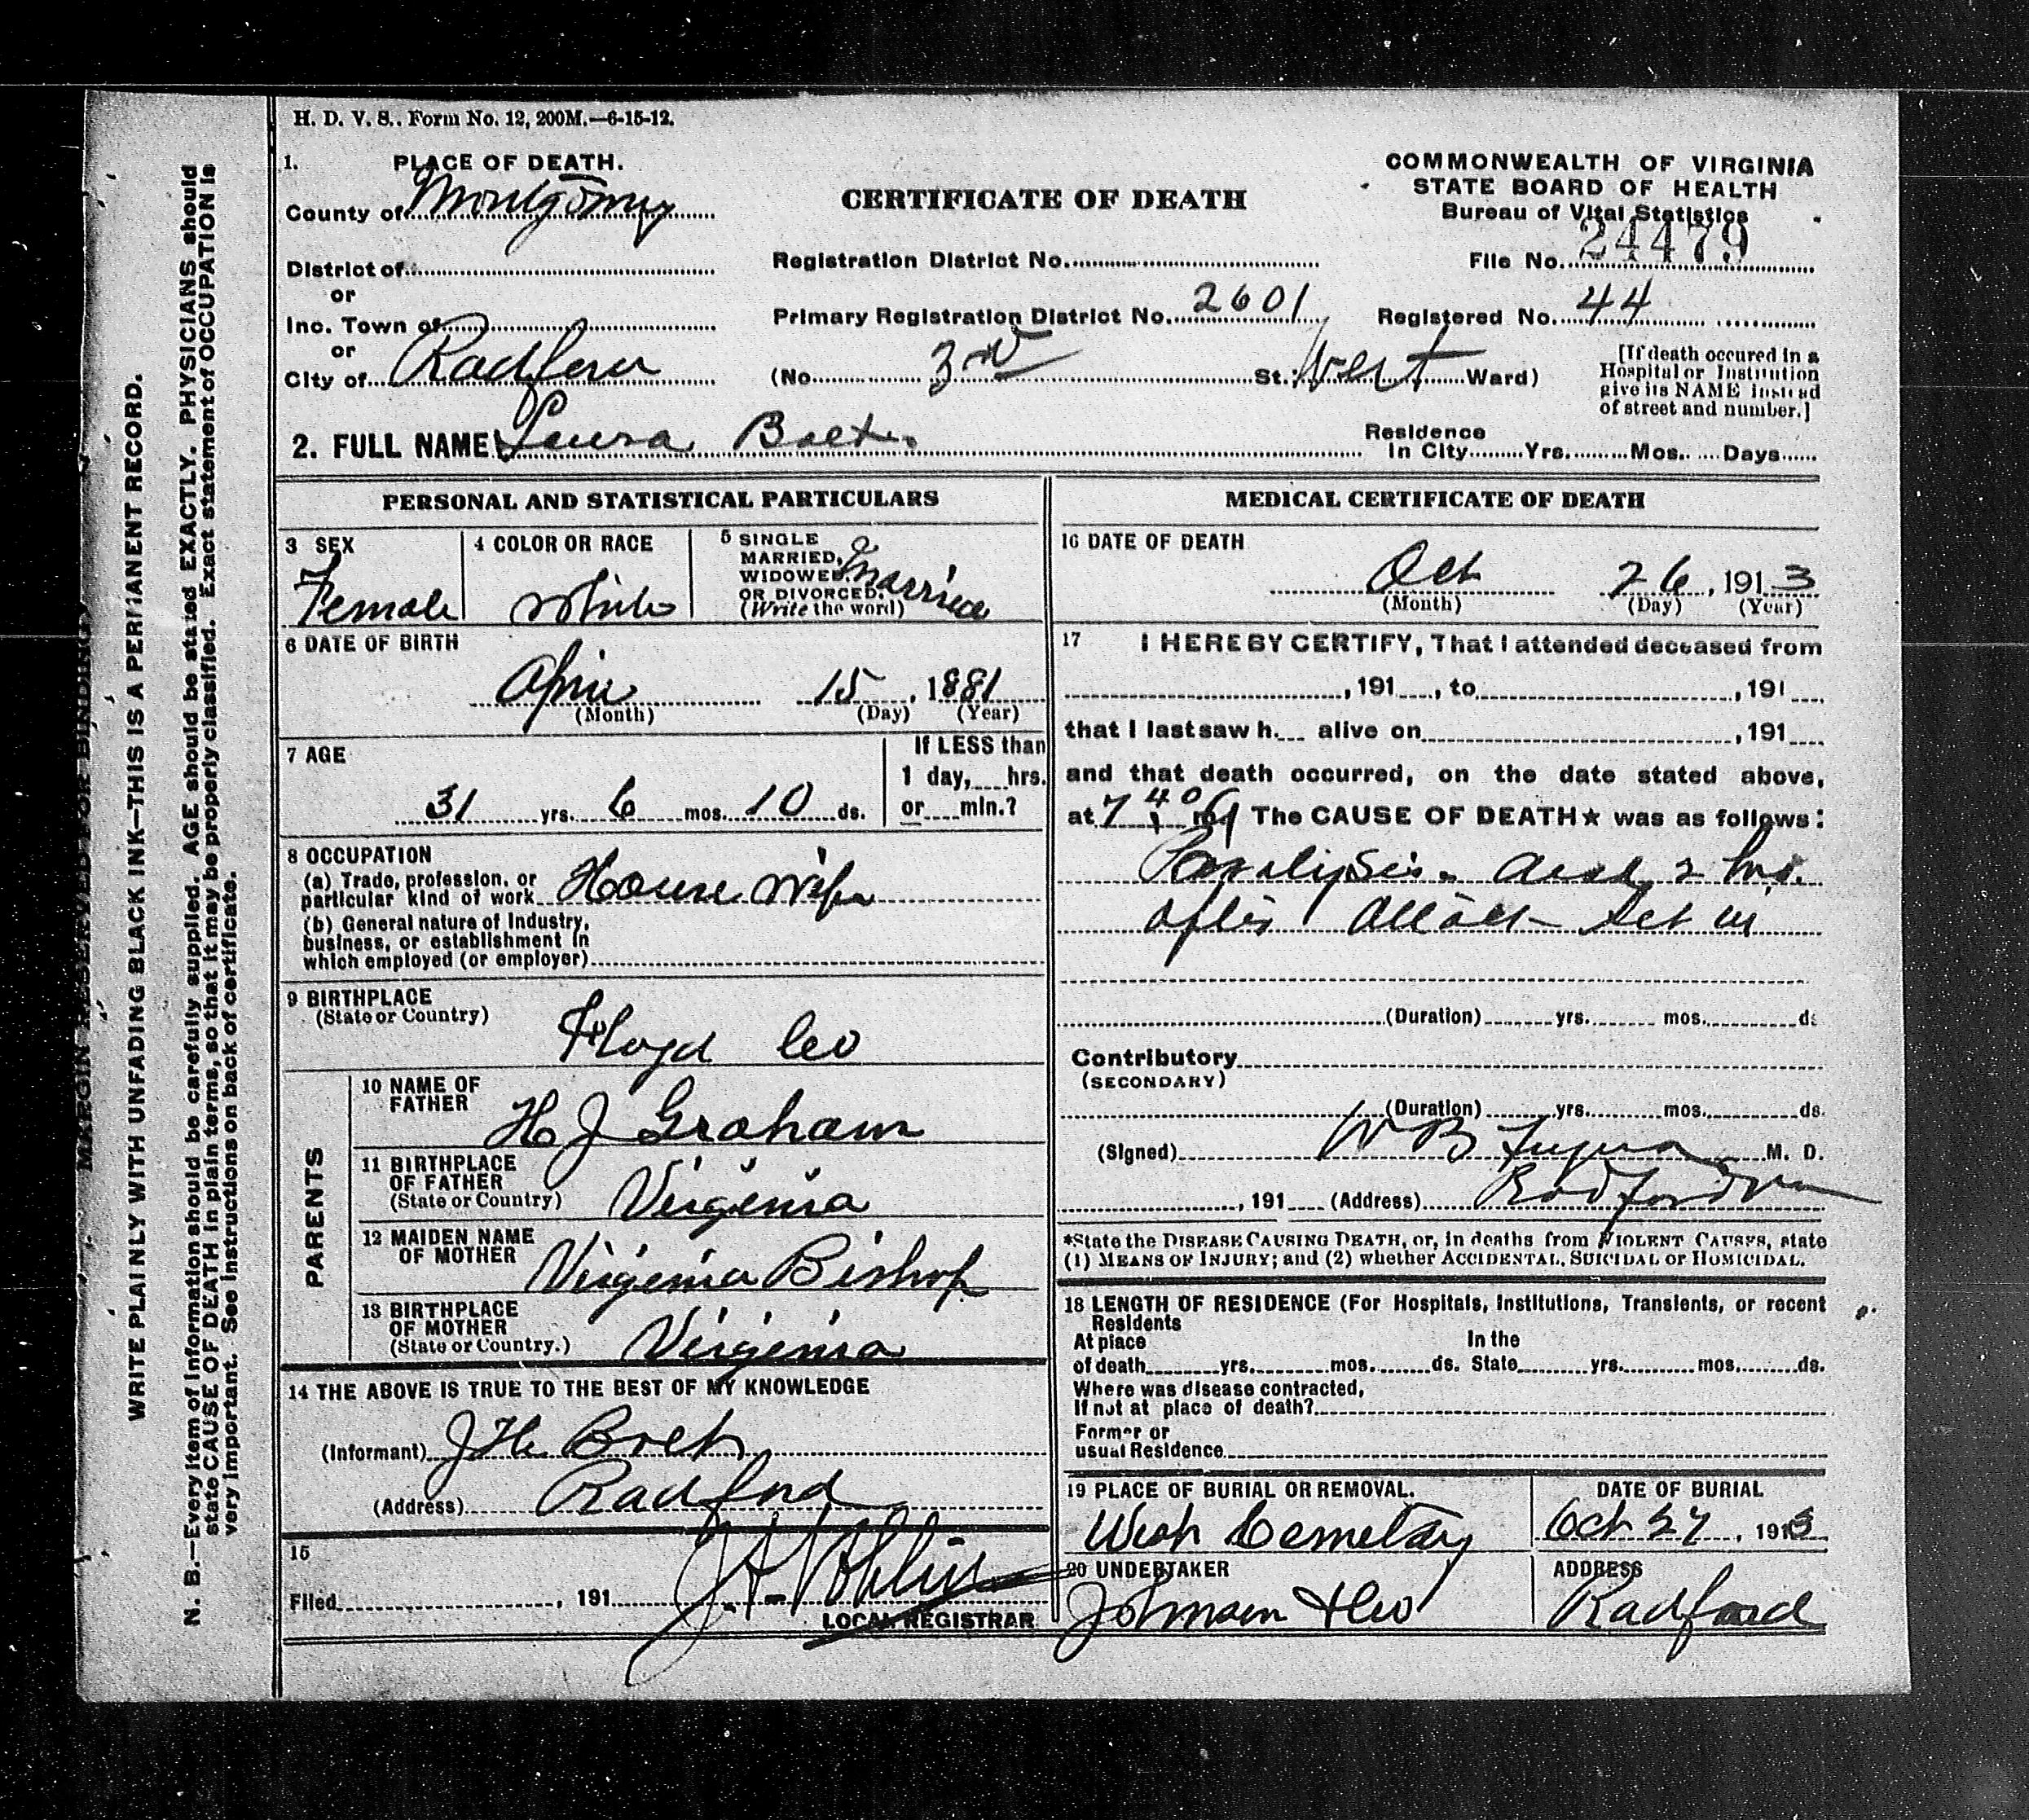 H. D. V. S.. Form No. 12, 200M.—6-15-12.
1. PLACE OF DEATH.
County of Montgomery
District of
or
Inc. Town of
or
City of Radford
CERTIFICATE OF DEATH
Registration District No.
Primary Registration District No. 2601
(No. 3rd St. West Ward)
COMMONWEALTH OF VIRGINIA
STATE BOARD OF HEALTH
Bureau of Vital Statistics
File No. 24479
Registered No. 44
[If death occured in a
Hospital or Institution
give its NAME instead
of street and number.]
2. FULL NAME Laura
Residence
In City Yrs. Mos. Days
PERSONAL AND STATISTICAL PARTICULARS
3 SEX
Female
4 COLOR OR RACE
White
5 SINGLE
MARRIED,
WIDOWED,
OR DIVORCED.
(Write the word)
Married
6 DATE OF BIRTH
April 15, 1881
(Month) (Day) (Year)
7 AGE
31 yrs. 6 mos. 10 ds.
If LESS than
1 day, hrs.
or min.?
8 OCCUPATION
(a) Trade, profession, or
particular kind of work House wife
(b) General nature of Industry,
business, or establishment in
which employed (or employer)
9 BIRTHPLACE
(State or Country)
Floyd Co
PARENTS
10 NAME OF
FATHER
H J Graham
11 BIRTHPLACE
OF FATHER
(State or Country)
Virginia
12 MAIDEN NAME
OF MOTHER
Virginia Bishop
13 BIRTHPLACE
OF MOTHER
(State or Country.)
Virginia
14 THE ABOVE IS TRUE TO THE BEST OF MY KNOWLEDGE
(Informant) J H
(Address) Radford
15
Filed , 191
LOCAL REGISTRAR
MEDICAL CERTIFICATE OF DEATH
16 DATE OF DEATH
Oct 26, 1913
(Month) (Day) (Year)
17 I HEREBY CERTIFY, That I attended deceased from
, 191 , to , 191
that I last saw h alive on , 191
and that death occurred, on the date stated above,
at 7 40 m. The CAUSE OF DEATH★ was as follows:
Paralysis. 2 hrs.
after attack set in
(Duration) yrs. mos. ds
Contributory
(SECONDARY)
(Duration) yrs. mos. ds.
(Signed) W B M. D.
, 191 (Address) Radford Va
*State the DISEASE CAUSING DEATH, or, in deaths from VIOLENT CAUSES, state
(1) MEANS OF INJURY; and (2) whether ACCIDENTAL, SUICIDAL or HOMICIDAL.
18 LENGTH OF RESIDENCE (For Hospitals, Institutions, Transients, or recent
Residents
At place In the
of death yrs. mos. ds. State yrs. mos. ds.
Where was disease contracted,
If not at place of death?
Former or
usual Residence
19 PLACE OF BURIAL OR REMOVAL.
West Cemetary
DATE OF BURIAL
Oct 27, 1913
20 UNDERTAKER
Johnson & Co
ADDRESS
Radford
MARGIN RESERVED FOR BINDING
WRITE PLAINLY WITH UNFADING BLACK INK—THIS IS A PERMANENT RECORD.
N. B.—Every item of information should be carefully supplied. AGE should be stated EXACTLY. PHYSICIANS should
state CAUSE OF DEATH in plain terms, so that it may be properly classified. Exact statement of OCCUPATION is
very important. See instructions on back of certificate.